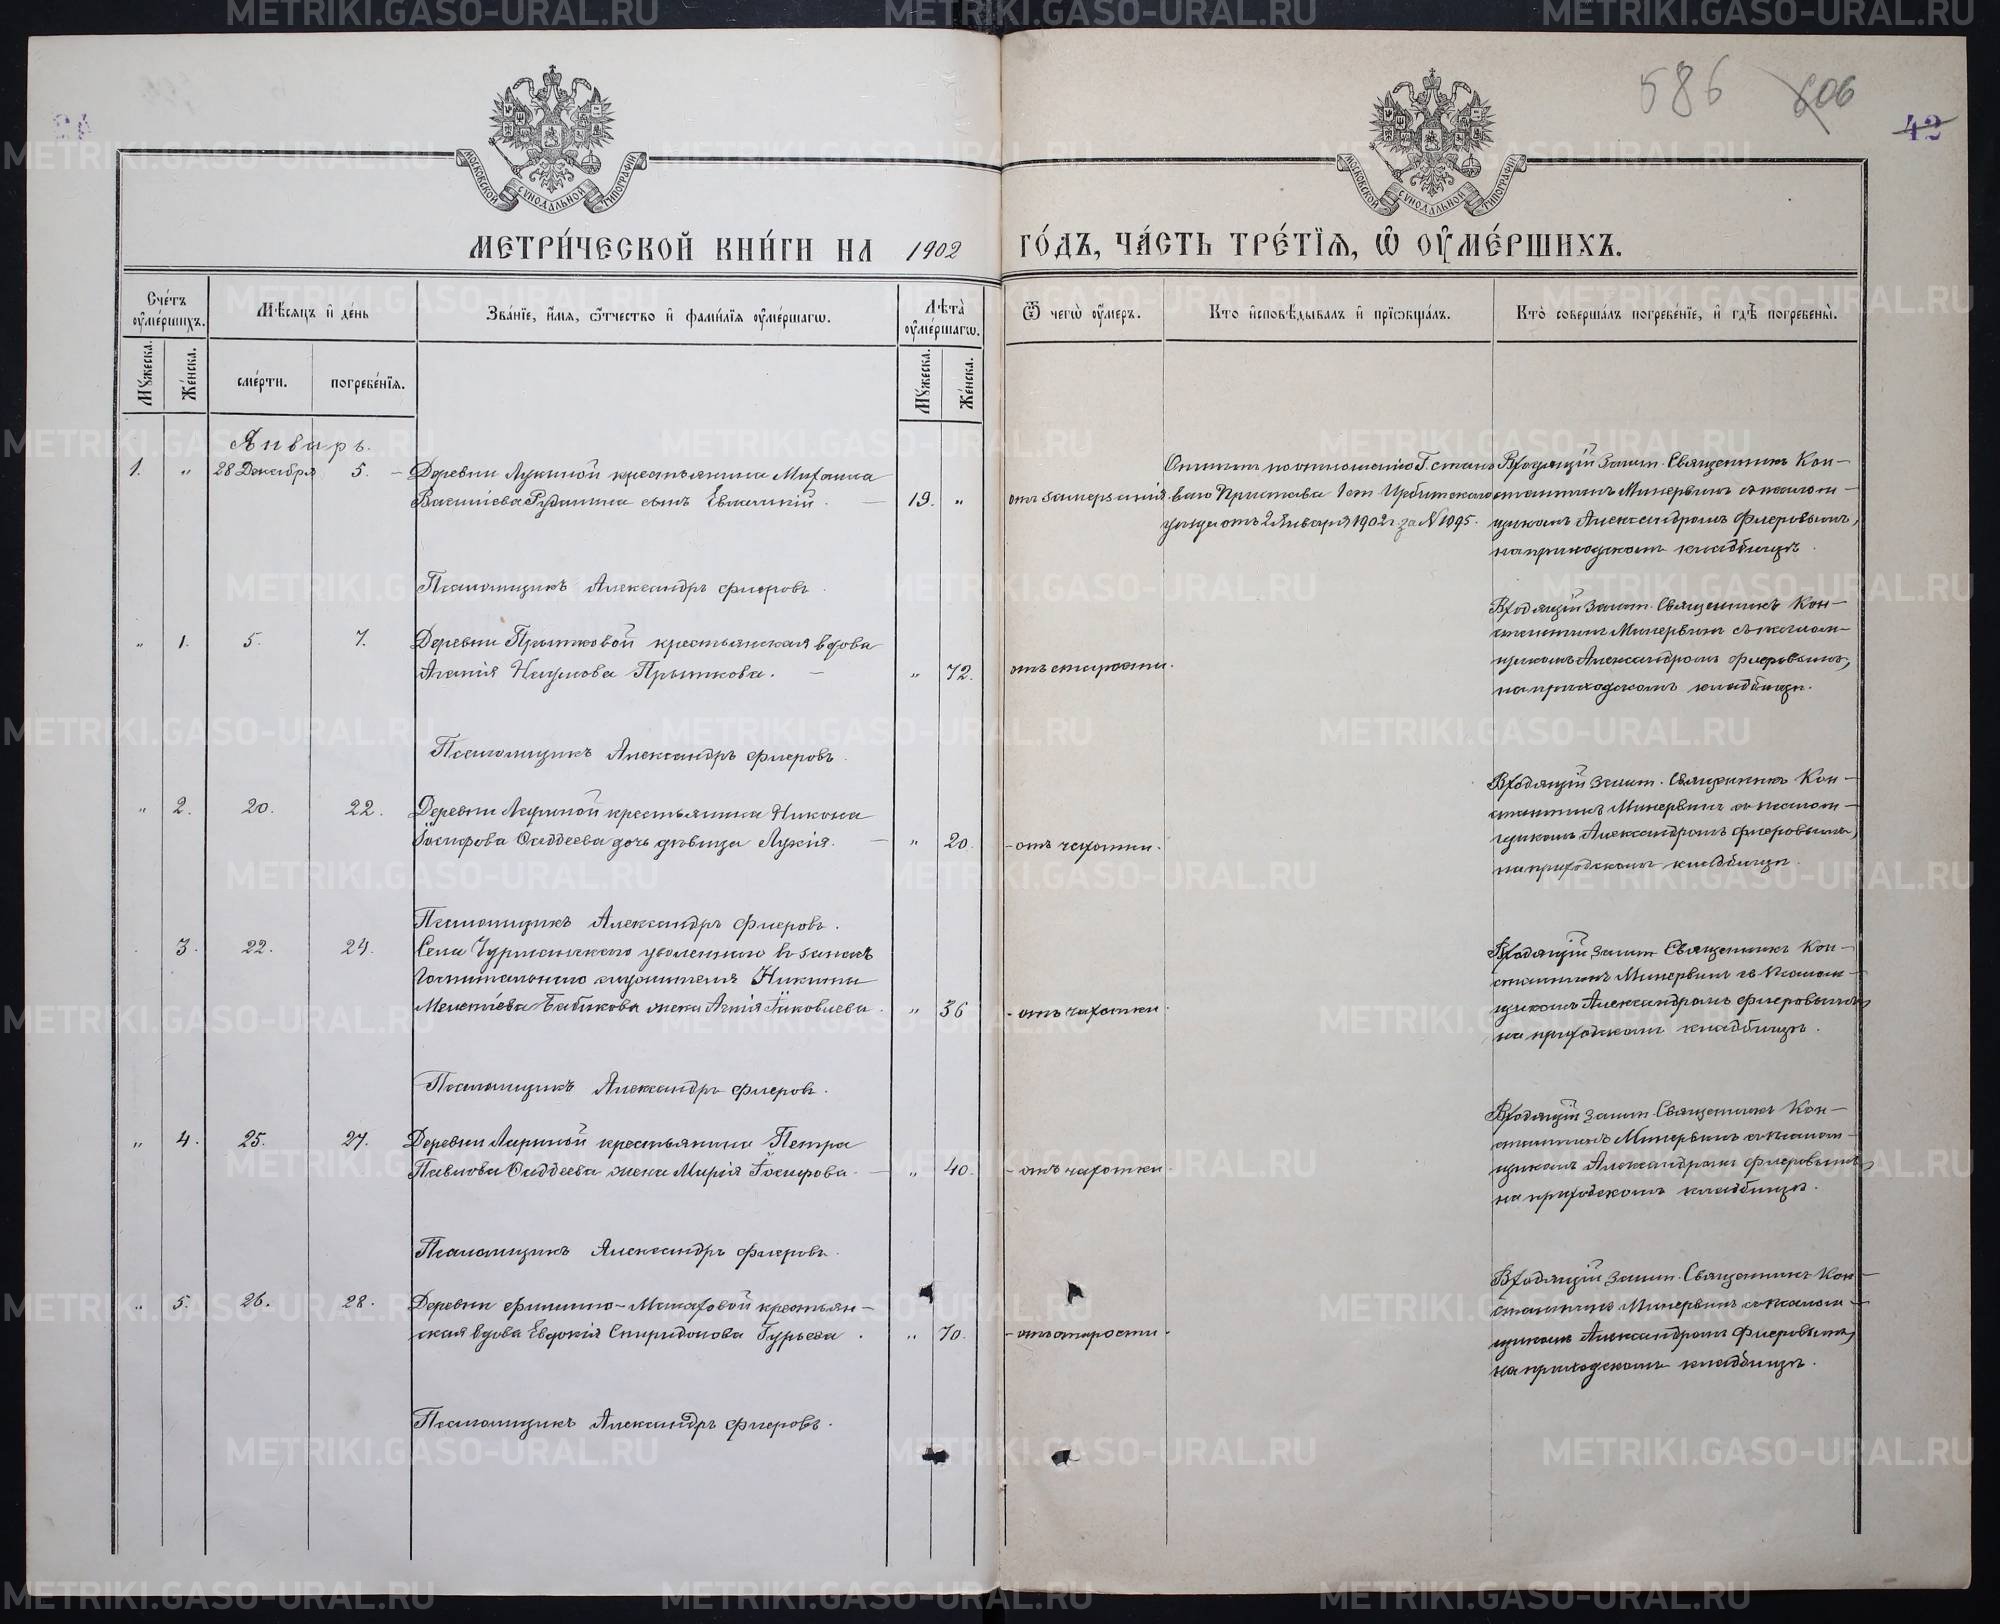 586 606
42
МОСКОВСКОЙ СѴНОДАЛЬНОЙ ТИПОГРАФІИ
МОСКОВСКОЙ СѴНОДАЛЬНОЙ ТИПОГРАФІИ
МЕТРИ́ЧЕСКОЙ КНИ́ГИ НА 1902 ГО́ДЪ, ЧА́СТЬ ТРЕ́ТІѦ, Ѡ҆ ОУ҆МЕ́РШИХЪ.
Сче́тъ оу҆ме́ршихъ.
Мѣ́сяцъ и҆ де́нь
Зва́ніе, и҆́мя, ѻ҆́тчество и҆ фами́лія оу҆ме́ршагѡ.
Лѣта̀ оу҆ме́ршагѡ.
Ѿ чегѡ̀ оу҆́меръ.
Кто̀ и҆сповѣ́дывалъ и҆ прїѡбща́лъ.
Кто̀ соверша́лъ погребе́ніе, и҆ гдѣ̀ погребены̀.
Мꙋ́жеска.
Же́нска.
сме́рти.
погребе́нія.
Мꙋ́жеска.
Же́нска.
Январь.
1. " 28 Декабря 5. Деревни Лукиной крестьянина Михаила
Васильева Рудакина сынъ Евлампій. 19. " отъ замерзанія
Становаго Пристава 1 ст Ирбитскаго
уѣзда отъ 2 Января 1902 г за № 1995.
Входящій замѣт. Священникъ Кон-
стантинъ Минервинъ съ псалом-
щикомъ Александромъ Флеровымъ,
на приходскомъ кладбищѣ.
Псаломщикъ Александръ Флеровъ.
" 1. 5. 7. Деревни Прытковой крестьянская вдова
Агапія Наумова Прыткова. " 72. отъ старости.
Входящій замѣт. Священникъ Кон-
стантинъ Минервинъ съ псалом-
щикомъ Александромъ Флеровымъ,
на приходскомъ кладбищѣ.
Псаломщикъ Александръ Флеровъ.
" 2. 20. 22. Деревни Лариной крестьянина Никона
Іосифова Ѳаддеева дочь дѣвица Лукія. " 20. отъ чахотки.
Входящій замѣт. Священникъ Кон-
стантинъ Минервинъ съ псалом-
щикомъ Александромъ Флеровымъ,
на приходскомъ кладбищѣ.
Псаломщикъ Александръ Флеровъ.
3. 22. 24. Села Чурманскаго уволеннаго въ запасъ
госпитальнаго служителя Никиты
Мелетіева Бабикова жена Агнія Іяковлева. " 36 отъ чахотки.
Входящій замѣт. Священникъ Кон-
стантинъ Минервинъ съ псалом-
щикомъ Александромъ Флеровымъ,
на приходскомъ кладбищѣ.
Псаломщикъ Александръ Флеровъ.
" 4. 25. 27. Деревни Лариной крестьянина Петра
Павлова Ѳаддеева жена Марія Іосифова. " 40. отъ чахотки.
Входящій замѣт. Священникъ Кон-
стантинъ Минервинъ съ псалом-
щикомъ Александромъ Флеровымъ,
на приходскомъ кладбищѣ.
Псаломщикъ Александръ Флеровъ.
" 5. 26. 28. Деревни Филино-Макаровой крестьян-
ская вдова Евдокія Спиридонова Гурьева. " 70. отъ старости.
Входящій замѣт. Священникъ Кон-
стантинъ Минервинъ съ псалом-
щикомъ Александромъ Флеровымъ,
на приходскомъ кладбищѣ.
Псаломщикъ Александръ Флеровъ.
METRIKI.GASO-URAL.RU